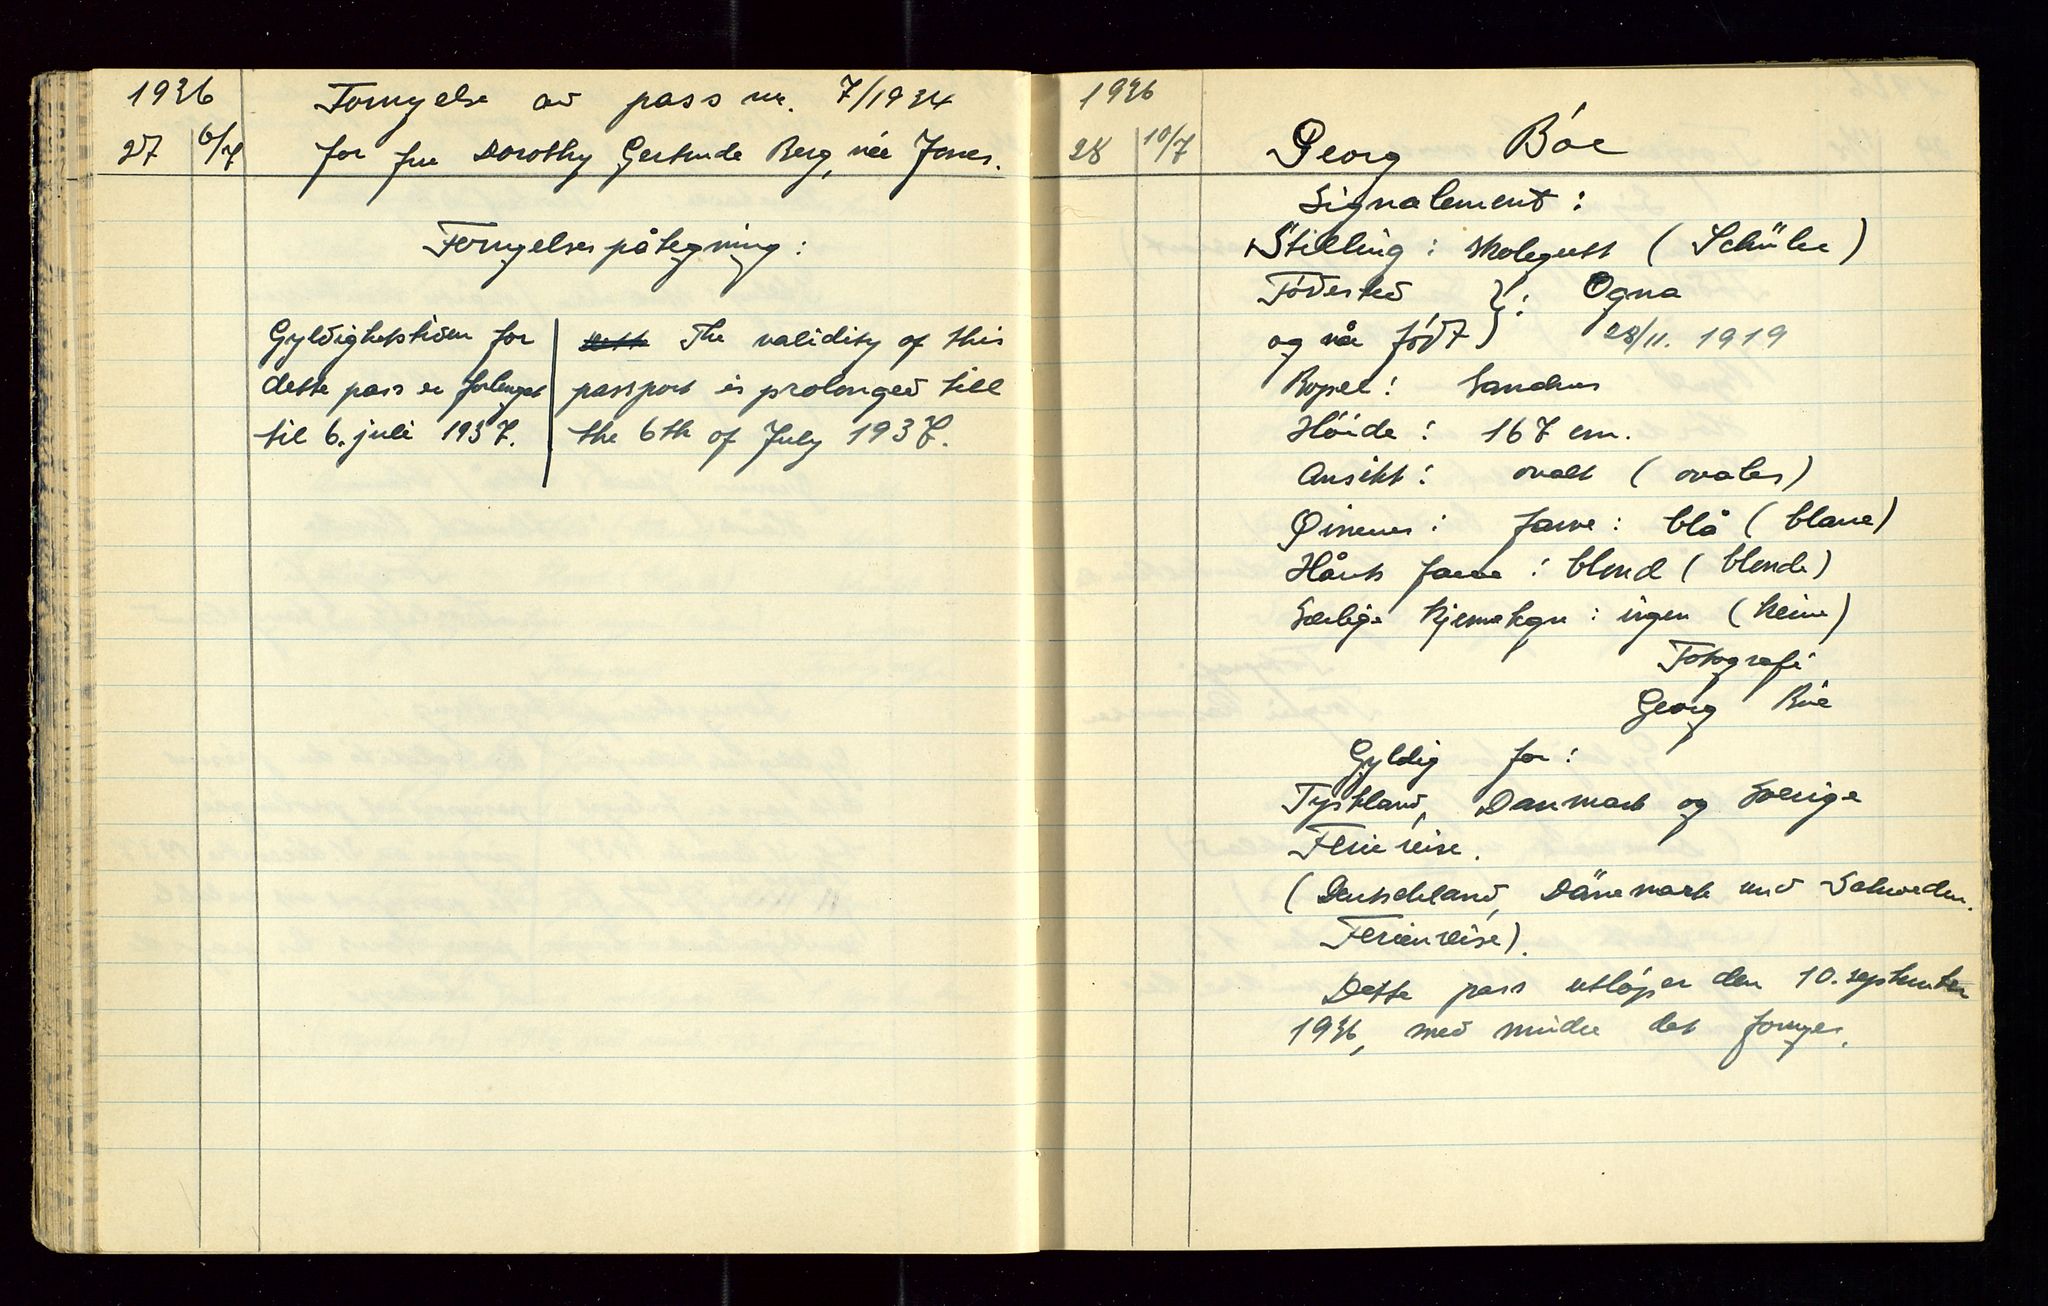 1936 Fornyelse av pass nr. 7/1934
27 6/7 for fru Dorothy Gertrude Berg, née Jones.
Fornyelsespåtegning:
Gyldighetstiden for
dette pass er forlenget
til 6. juli 1937.
The validity of this
passport is prolonged till
the 6th of July 1937.
1936
28 10/7 Georg Bóe
Signalement:
Stilling: skolegutt (Schüler)
Fódested }: Ogna
og når fódt } 28/11. 1919
Bopel: Sandnes
Hóide: 167 cm.
Ansikt: ovalt (ovales)
Øinenes: farve: blå (blaue)
Hårets farve: blond (blonde)
Særlige kjennetegn: ingen (keine)
Fotografi
Georg Bóe
Gyldig for:
Tyskland, Danmark og Sverige
Ferie reise.
(Deutschland, Dänemark und Schweden.
Ferienreise).
Dette pass utlóper den 10. september
1936, med mindre det fornyes.